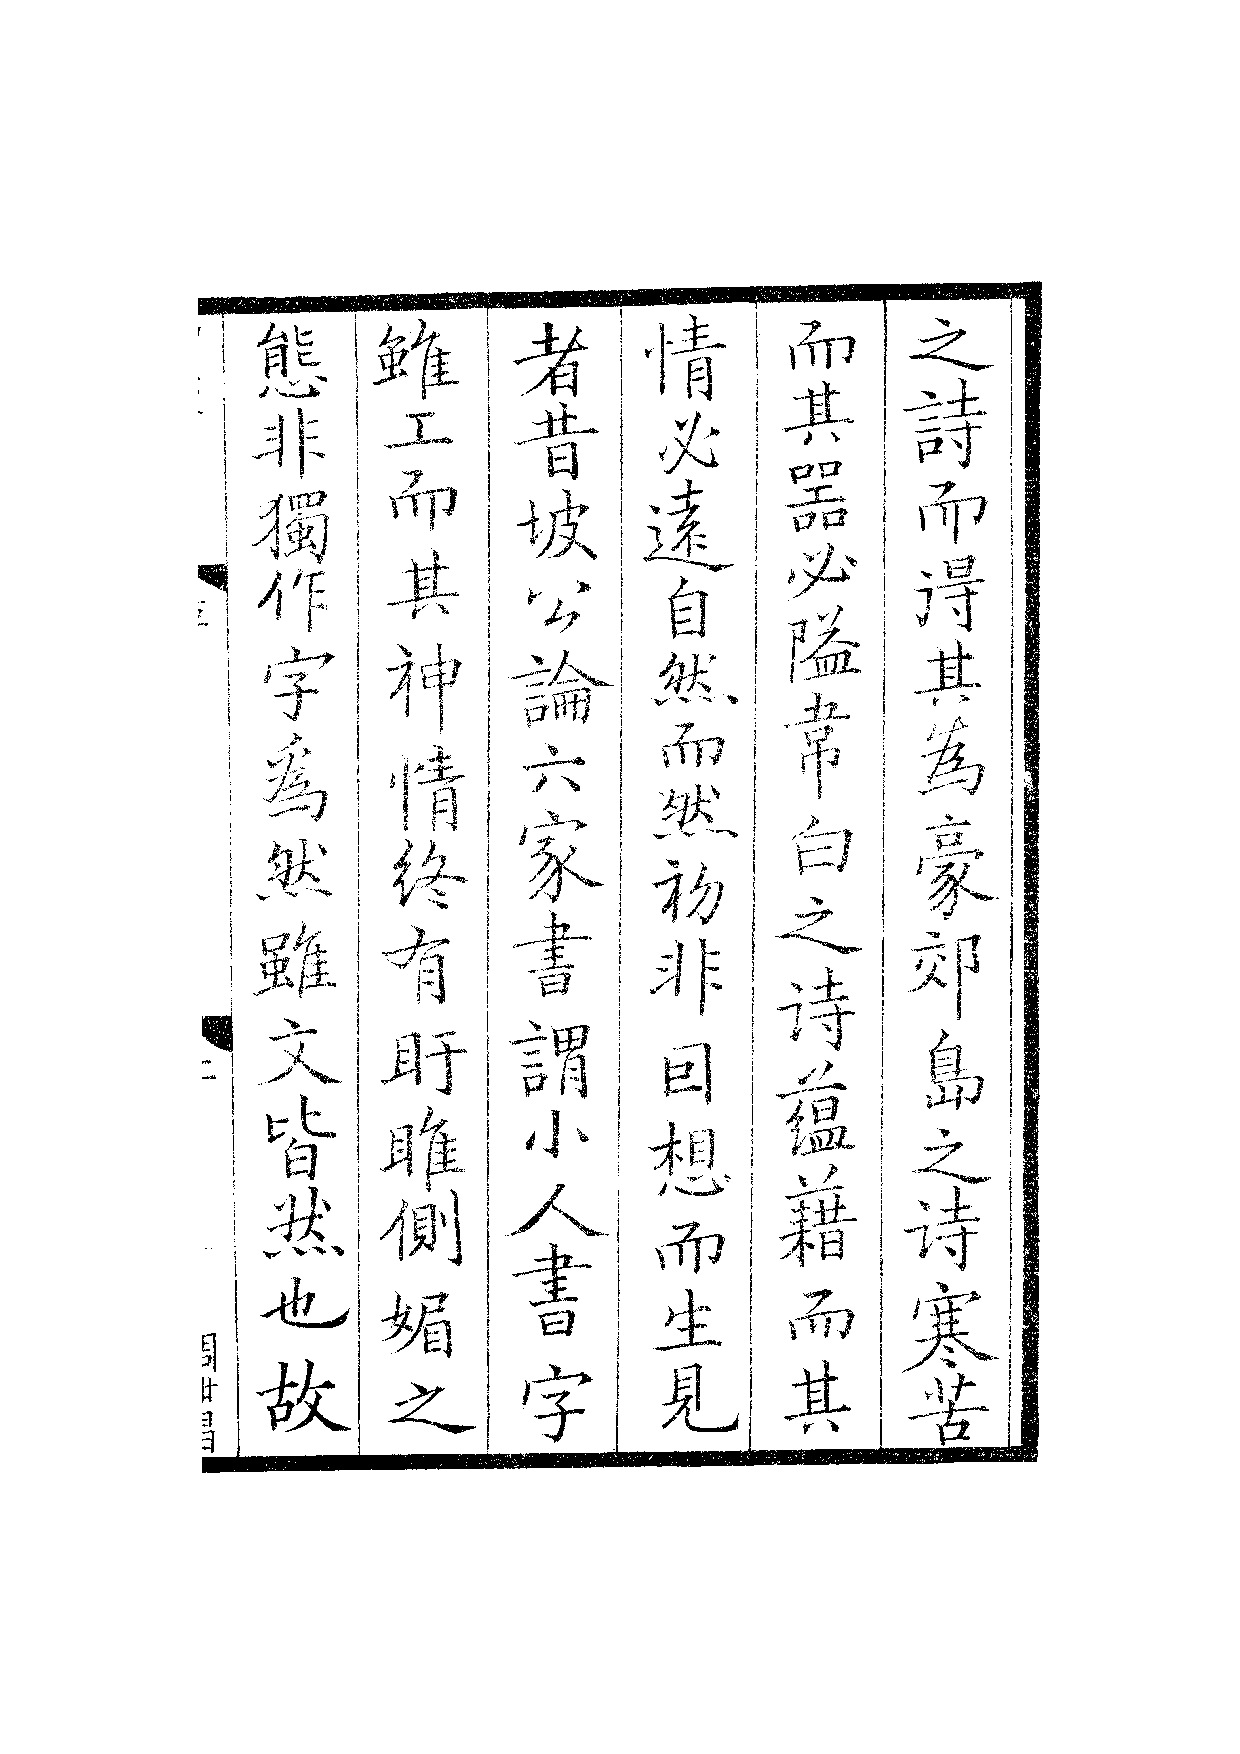 之詩而得其為豪郊島之詩寒苦
而其器必隘常白之詩蘊藉而其
情必遠自然而然初非回想而生見
者昔坡公論六家書謂小人書字
雖工而其神情終有盱睢側媚之
態非獨作字爲然雖文皆然也故